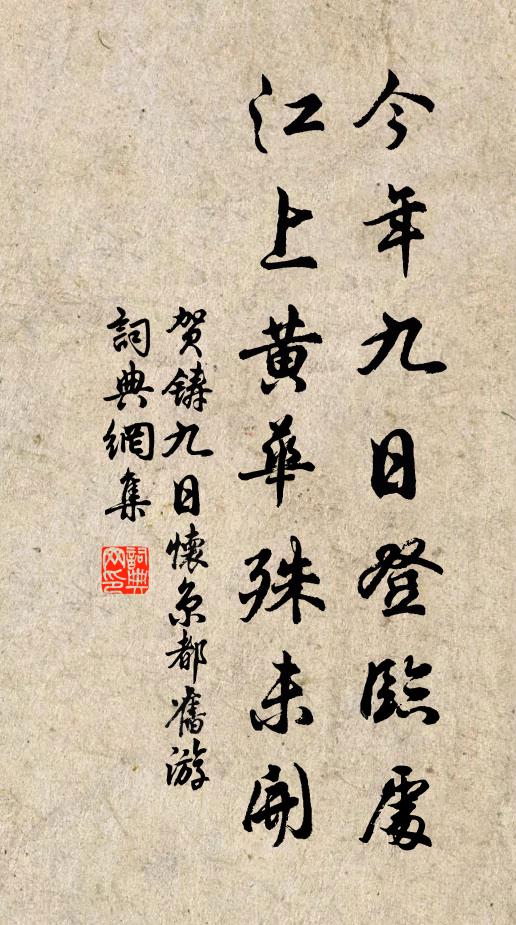 今年九日登臨處
江上黃華殊未開
賀鑄九日懷京都舊游
詞典網集
詞典网印